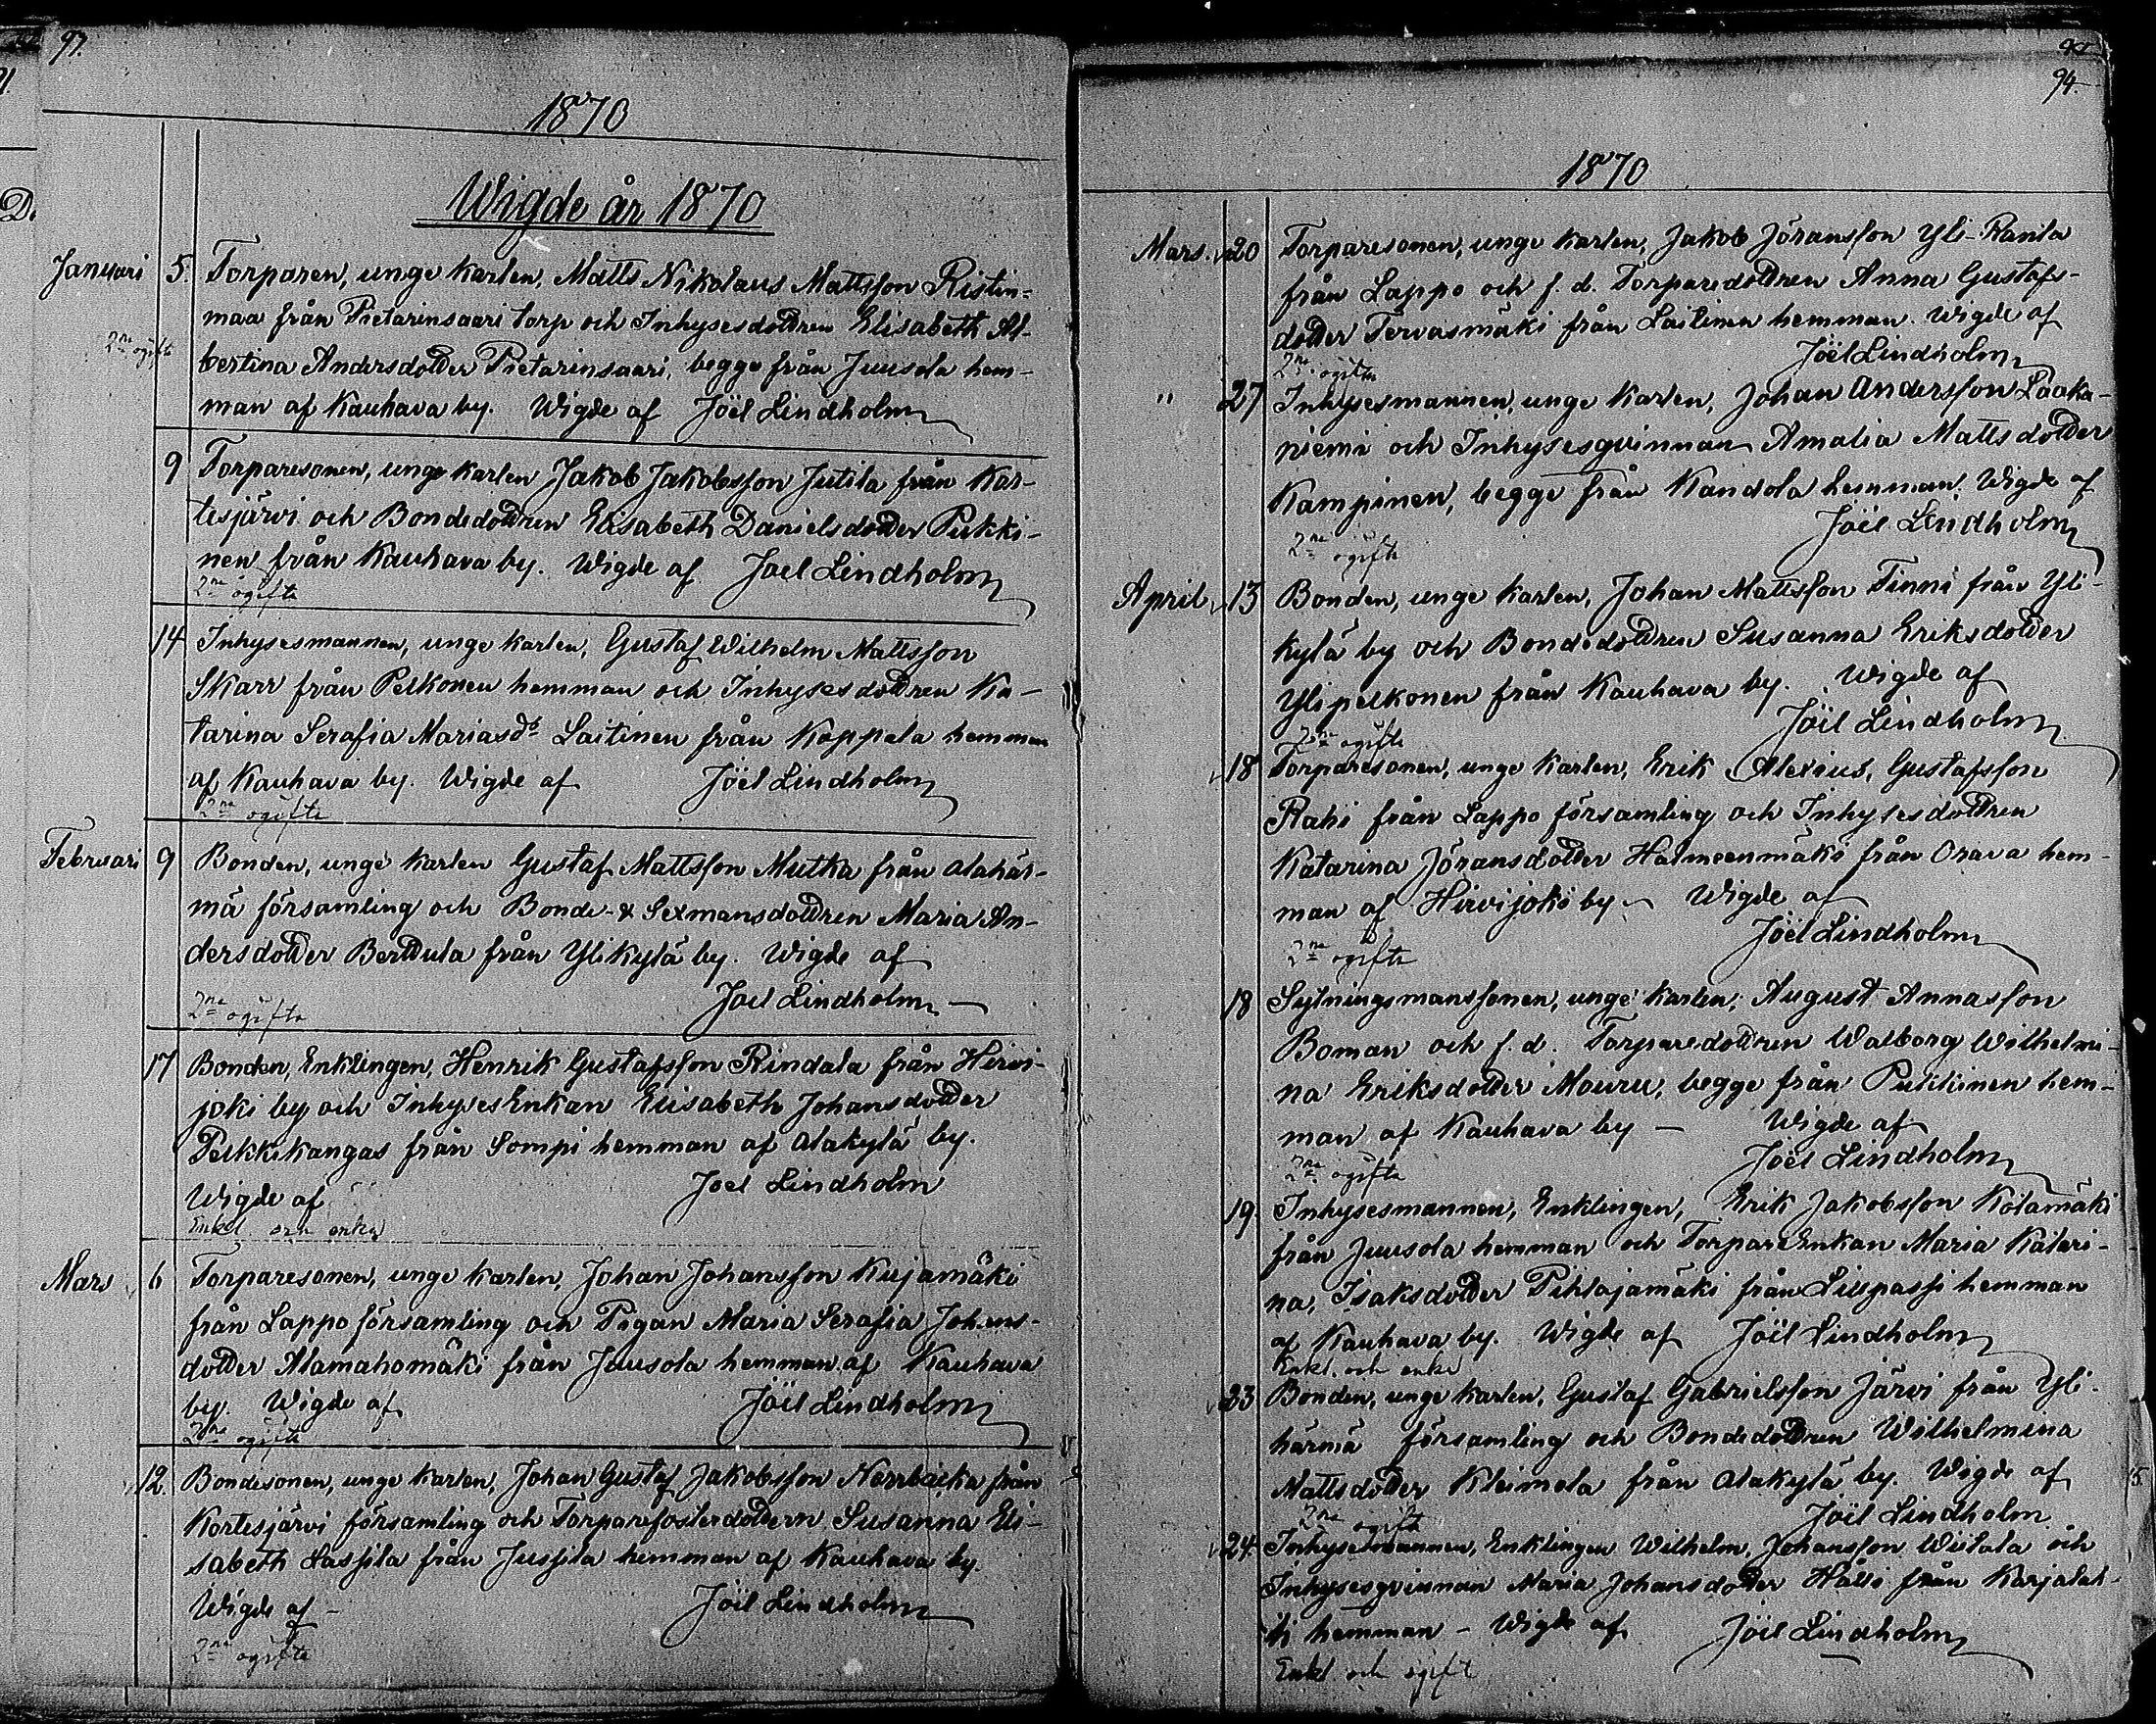 97.
1870
Wigde år 1870
Januari 5. Torparen, unge karlen, Matts Nikolaus Mattsson Ristin-
maa från Pietarinsaari torp och Inhysesdottren Elisabeth Al-
2ne ogifte
bertina Andersdotter Pietarinsaari, begge från Juusola hem-
man af Kauhava by. Wigde af Joël Lindholm
9 Torparesonen, unge karlen Jakob Jakobsson Jutila från Kor-
tesjärvi och Bondedottren Elisabeth Danielsdotter Pukki-
nen från Kauhava by. Wigde af Joel Lindholm
2ne ogifte
14 Inhysesmannen, unge karlen, Gustaf Wilhelm Mattsson
Skarr från Pelkonen hemman och Inhysesdottren Ka-
tarina Serafia Mariasdr Laitinen från Koppala hemman
af Kauhava by. Wigde af Joël Lindholm
2ne ogifte
Februari 9 Bonden, unge karlen Gustaf Mattsson Mutka från Alahär-
mä församling och Bonde- & Sexmansdottren Maria An-
dersdotter Berttula från Ylikylä by. Wigde af
Joel Lindholm
2ne ogifte
17 Bonden, Enklingen, Henrik Gustafsson Rindala från Hirvi-
joki by och InhysesEnkan Elisabeth Johansdotter
Pelkkikangas från Sompi hemman af Alakylä by.
Wigde af Joel Lindholm
Enkl och enka
Mars 6 Torparesonen, unge karlen, Johan Johansson Kujamäki
från Lappo församling och Pigan Maria Serafia Johans-
dotter Alamahomäki från Juusola hemman af Kauhava
by. Wigde af Joël Lindholm
2ne ogifte
12. Bondesonen, unge karlen, Johan Gustaf Jakobsson Norrbacka från
Kortesjärvi församling och Torparefosterdottern Susanna Eli-
sabeth Lassila från Jussila hemman af Kauhava by.
Wigde af - Joël Lindholm
2ne ogifte
94.
1870
Mars. 20 Torparesonen, unge karlen, Jakob Jöransson Yli-Ranta
från Lappo och f. d. Torparedottren Anna Gustafs-
dotter Tervasmäki från Laitinen hemman. Wigde af
2ne ogifte Joël Lindholm
" 27 Inhysesmannen, unge karlen, Johan Andersson Laaka-
niemi och Inhysesqvinnan Amalia Mattsdotter
Kampinen, begge från Kandola hemman. Wigde af
Joël Lindholm
2ne ogifte
April 13 Bonden, unge karlen, Johan Mattsson Tinni från Yli-
kylä by och Bondedottren Susanna Eriksdotter
Ylipelkonen från Kauhava by. Wigde af
Joël Lindholm
2ne ogifte
18 Torparesonen, unge karlen, Erik Alexius, Gustafsson
Rahi från Lappo församling och Inhysesdottren
Katarina Jöransdotter Halmeenmäki från Orava hem-
man af Hirvijoki by - Wigde af
Joël Lindholm
2ne ogifte
18 Sytningsmanssonen, unge karlen, August Annasson
Boman och f. d. Torparedottren Walborg Wilhelmi-
na Eriksdotter Mouru, begge från Pukkinen hem-
man af Kauhava by - Wigde af
Joël Lindholm
2ne ogifte
19. Inhysesmannen, Enklingen, Erik Jakobsson Kotamäki
från Juusola hemman och TorpareEnkan Maria Katari-
na, Isaksdotter Pihlajamäki från Liipassi hemman
af Kauhava by. Wigde af Joël Lindholm
Enkl. och enka
23 Bonden, unge karlen, Gustaf Gabrielsson Järvi från Yli-
härmä församling och Bondedottren Wilhelmina
Mattsdotter Kleimola från Alakylä by. Wigde af
2ne ogifte Joël Lindholm
24. Inhysesmannen, Enklingen Wilhelm, Johansson Wiitala och
Inhysesqvinnan Maria Johansdotter från Karjalah-
ti hemman - Wigde af Joël Lindholm
Enkl och ogift